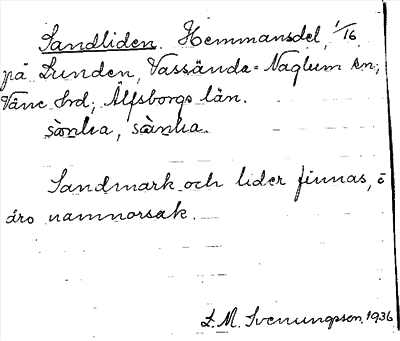 Sandliden. Hemmansdel, 1/16
på Lunden, Vassända-Naglum sn;
Väne hrd; Älfsborgs län.
sànlıa, sànlıa.
Sandmark och lider finnas, ē
äro namnorsak.
L. M. Svenungsson. 1936